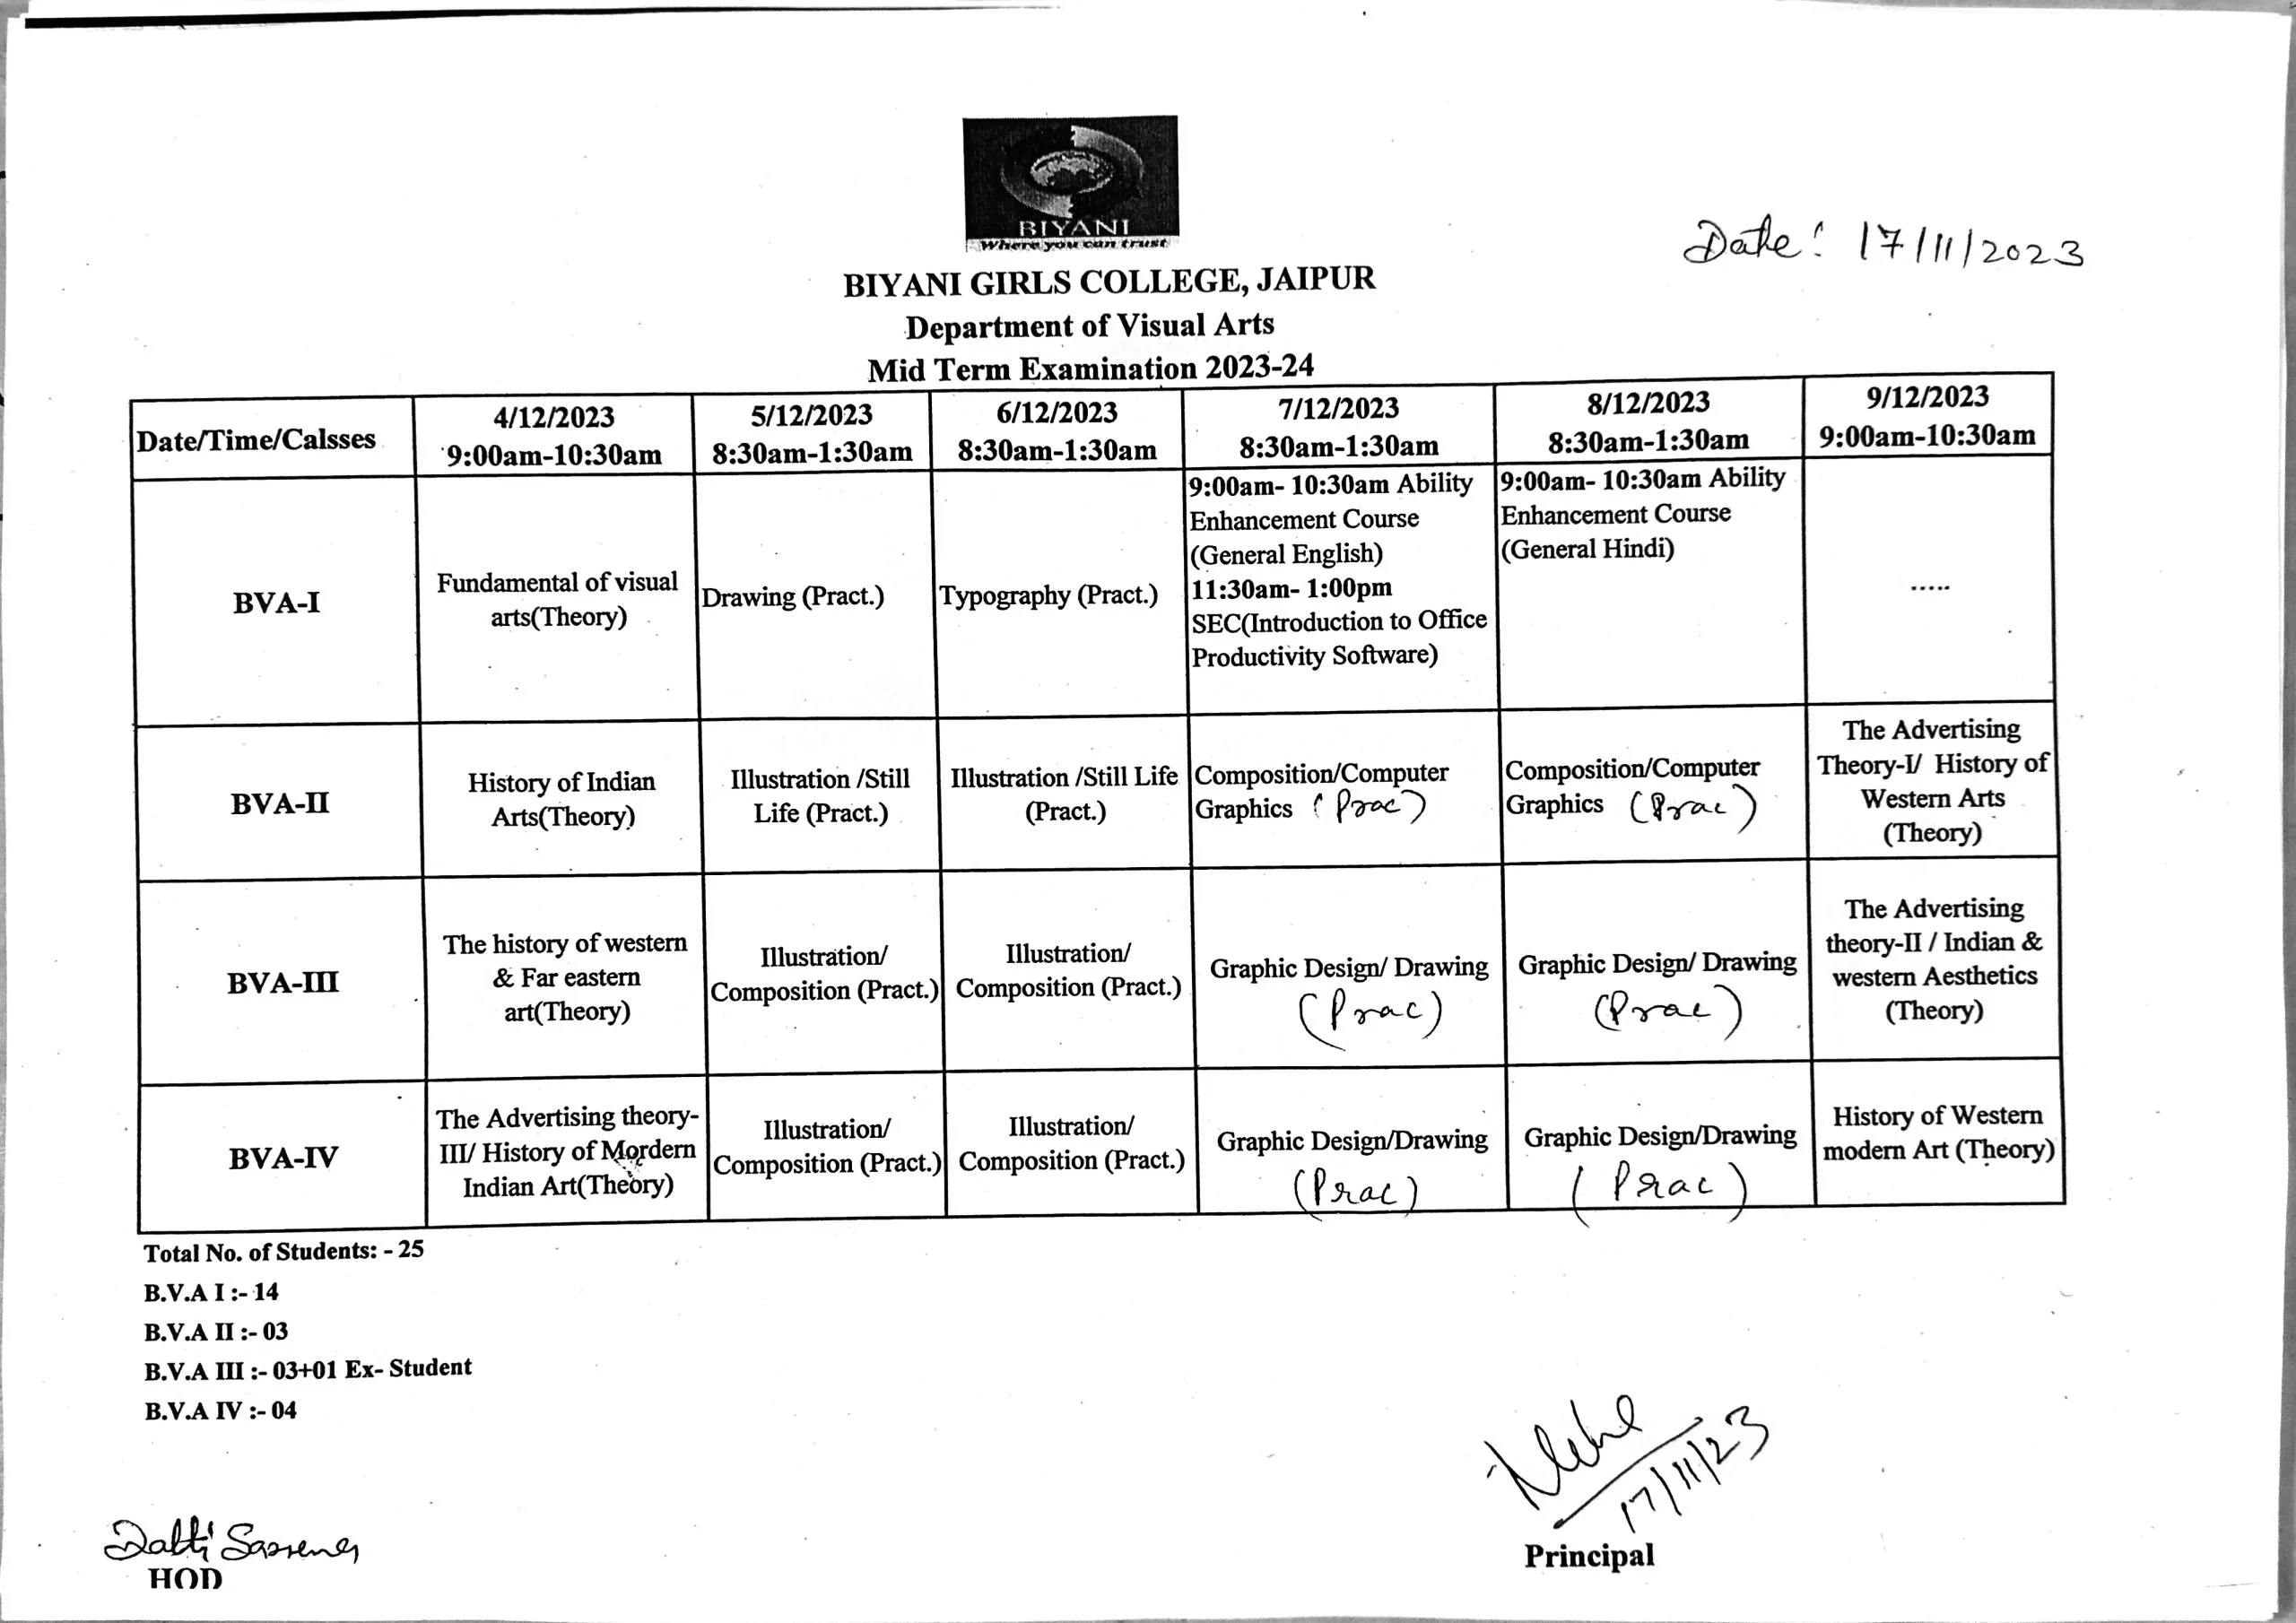 BIYANI
Where you can trust
Date: 17/11/2023
BIYANI GIRLS COLLEGE, JAIPUR
Department of Visual Arts
Mid Term Examination 2023-24
Date/Time/Calsses
4/12/2023
9:00am-10:30am
5/12/2023
8:30am-1:30am
6/12/2023
8:30am-1:30am
7/12/2023
8:30am-1:30am
8/12/2023
8:30am-1:30am
9/12/2023
9:00am-10:30am
BVA-I
Fundamental of visual
arts(Theory)
Drawing (Pract.)
Typography (Pract.)
9:00am- 10:30am Ability
Enhancement Course
(General English)
11:30am- 1:00pm
SEC(Introduction to Office
Productivity Software)
9:00am- 10:30am Ability
Enhancement Course
(General Hindi)
.....
BVA-II
History of Indian
Arts(Theory)
Illustration /Still
Life (Pract.)
Illustration /Still Life
(Pract.)
Composition/Computer
Graphics (Prac)
Composition/Computer
Graphics (Prac)
The Advertising
Theory-I/ History of
Western Arts
(Theory)
BVA-III
The history of western
& Far eastern
art(Theory)
Illustration/
Composition (Pract.)
Illustration/
Composition (Pract.)
Graphic Design/ Drawing
(Prac)
Graphic Design/ Drawing
(Prac)
The Advertising
theory-II / Indian &
western Aesthetics
(Theory)
BVA-IV
The Advertising theory-
III/ History of Mordern
Indian Art(Theory)
Illustration/
Composition (Pract.)
Illustration/
Composition (Pract.)
Graphic Design/Drawing
(Prac)
Graphic Design/Drawing
(Prac)
History of Western
modern Art (Theory)
Total No. of Students: - 25
B.V.A I :- 14
B.V.A II :- 03
B.V.A III :- 03+01 Ex- Student
B.V.A IV :- 04
17/11/23
HOD
Principal